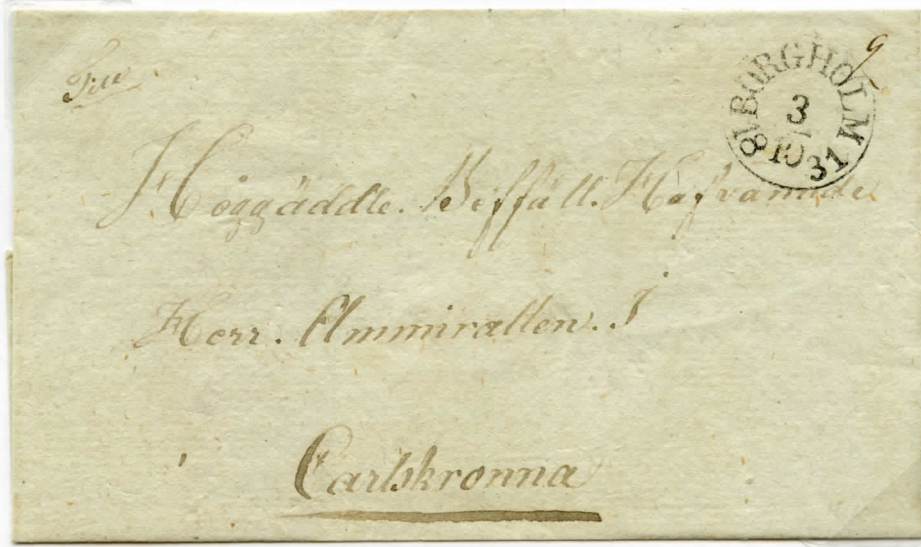 BORGHOLM
3
10
1831
9
Höggäddle. Beffäll. Hafvamde
Herr. Ammirallen. I
Carlskronna